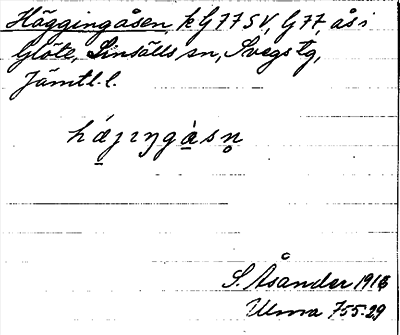 Häggingåsen, k G 77 SV, G 77, ås i
Glöte, Linsälls sn, Svegs tg,
Jämtl. l.
hájıŋgàsn̥
S. Åsander 1916
Ulma 755:29